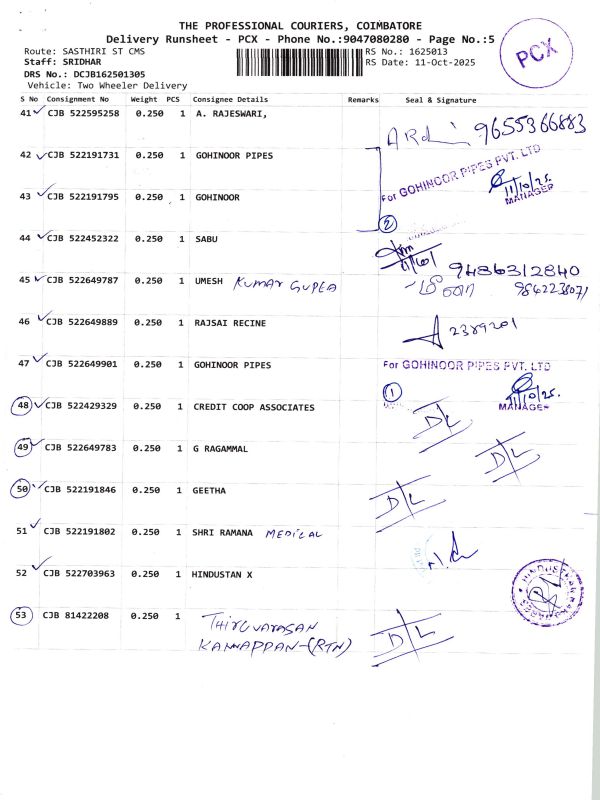 THE PROFESSIONAL COURIERS, COIMBATORE
Delivery Runsheet - PCX - Phone No.:9047080280 - Page No.:5
Route: SASTHIRI ST CMS
RS No.: 1625013
Staff: SRIDHAR
RS Date: 11-Oct-2025
DRS No.: DCJB162501305
Vehicle: Two Wheeler Delivery
PCX
S No Consignment No Weight PCS Consignee Details Remarks Seal & Signature
41 CJB 522595258 0.250 1 A. RAJESWARI, 9655366883
42 CJB 522191731 0.250 1 GOHINOOR PIPES
For GOHINOOR PIPES PVT. LTD
11/10/25.
MANAGER
43 CJB 522191795 0.250 1 GOHINOOR
2
44 CJB 522452322 0.250 1 SABU
9486312840
45 CJB 522649787 0.250 1 UMESH KUMAR GUPTA
மீனா
46 CJB 522649889 0.250 1 RAJSAI RECINE 2389201
47 CJB 522649901 0.250 1 GOHINOOR PIPES For GOHINOOR PIPES PVT. LTD
1
11/10/25.
MANAGER
48 CJB 522429329 0.250 1 CREDIT COOP ASSOCIATES D/L
49 CJB 522649783 0.250 1 G RAGAMMAL D/L
50 CJB 522191846 0.250 1 GEETHA D/L
51 CJB 522191802 0.250 1 SHRI RAMANA MEDICAL
52 CJB 522703963 0.250 1 HINDUSTAN X
53 CJB 81422208 0.250 1 THIRUVARASAN
KANNAPPAN-(RTN) D/L